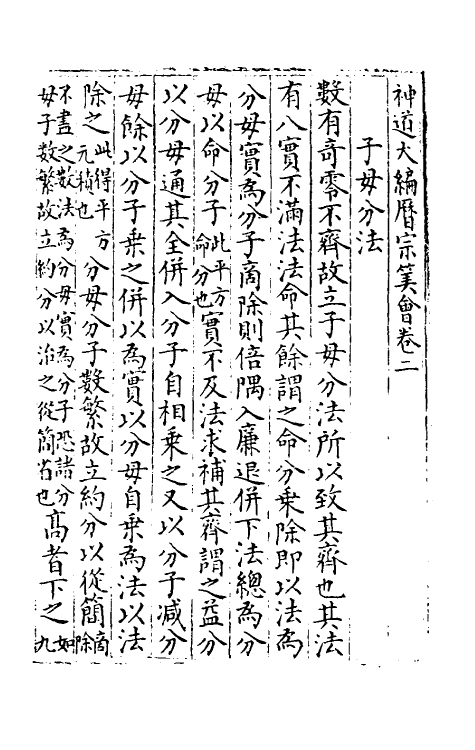 神道大編曆宗筭會卷二
子母分法
數有奇零不齊故立子母分法所以致其齊也其法
有八實不滿法法命其餘謂之命分乗除即以法為
分母實為分子商除則倍隅入廉退併下法總為分
母以命分子此平方命分也實不及法求補其齊謂之益分
以分母通其全併入分子自相乗之又以分子減分
母餘以分子乗之併以為實以分母自乗為法以法
除之此得平方元積也分母分子數繁故立約分以從簡商除
不盡之數法為分母實為分子恐諸分母子數繁故立約分以治之從簡省也髙者下之如九